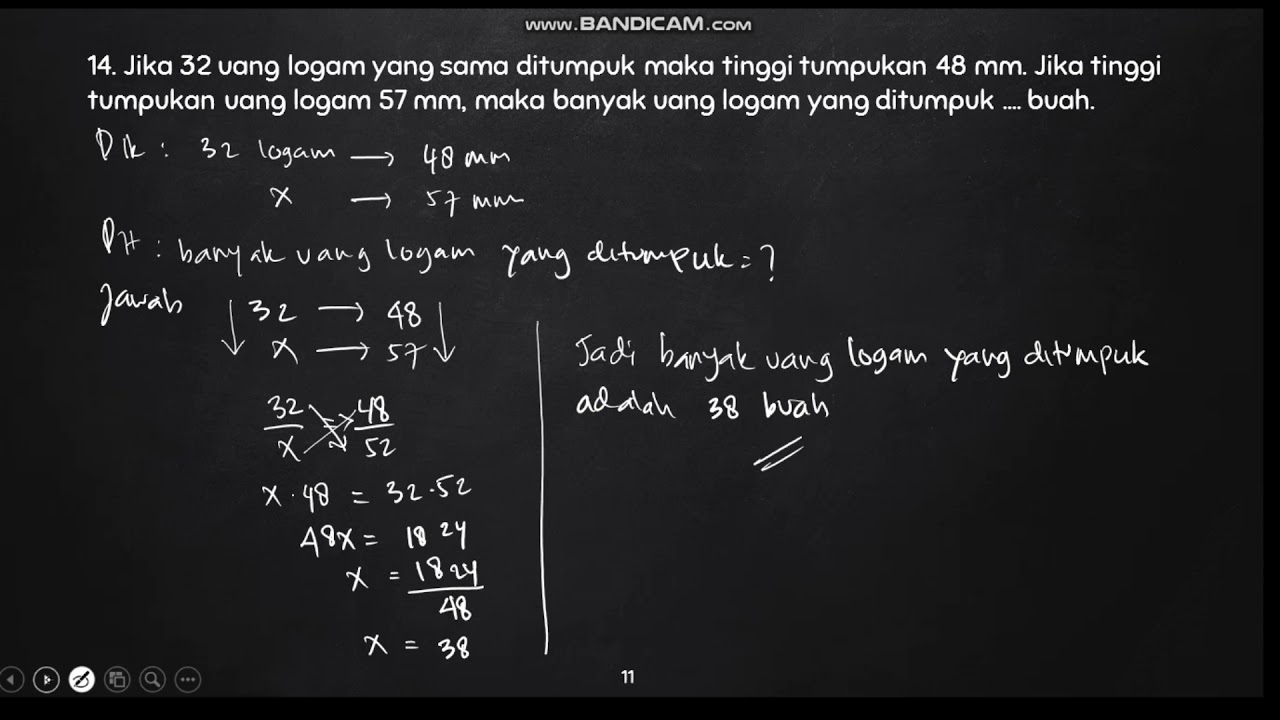 www.BANDICAM.com
14. Jika 32 uang logam yang sama ditumpuk maka tinggi tumpukan 48 mm. Jika tinggi
tumpukan uang logam 57 mm, maka banyak uang logam yang ditumpuk .... buah.
Dik : 32 logam → 48 mm
x → 57 mm
Dit : banyak uang logam yang ditumpuk = ?
Jawab
↓ 32 → 48 ↓
x → 57
32/x = 48/52
x · 48 = 32 · 52
48x = 1824
x = 1824/48
x = 38
Jadi banyak uang logam yang ditumpuk
adalah 38 buah
11